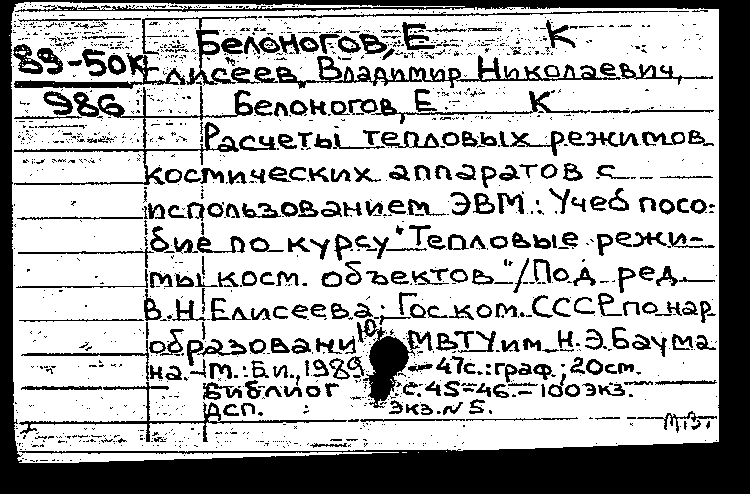 Белоногов, Е К
89-50К Елисеев, Владимир Николаевич,
986 Белоногов, Е К
Расчеты тепловых режимов
космических аппаратов с
использованием ЭВМ: Учеб посо-
бие по курсу "Тепловые режи-
мы косм. объектов"/Под ред.
В.Н.Елисеева; Гос ком. СССР по нар
образовани10, МВТУ им. Н.Э.Баума
на.-М.: Б.и., 1989 -47с.: граф.; 20см.
Библиог с.45-46.-100экз.
ДСП. экз.N 5.
М.В.